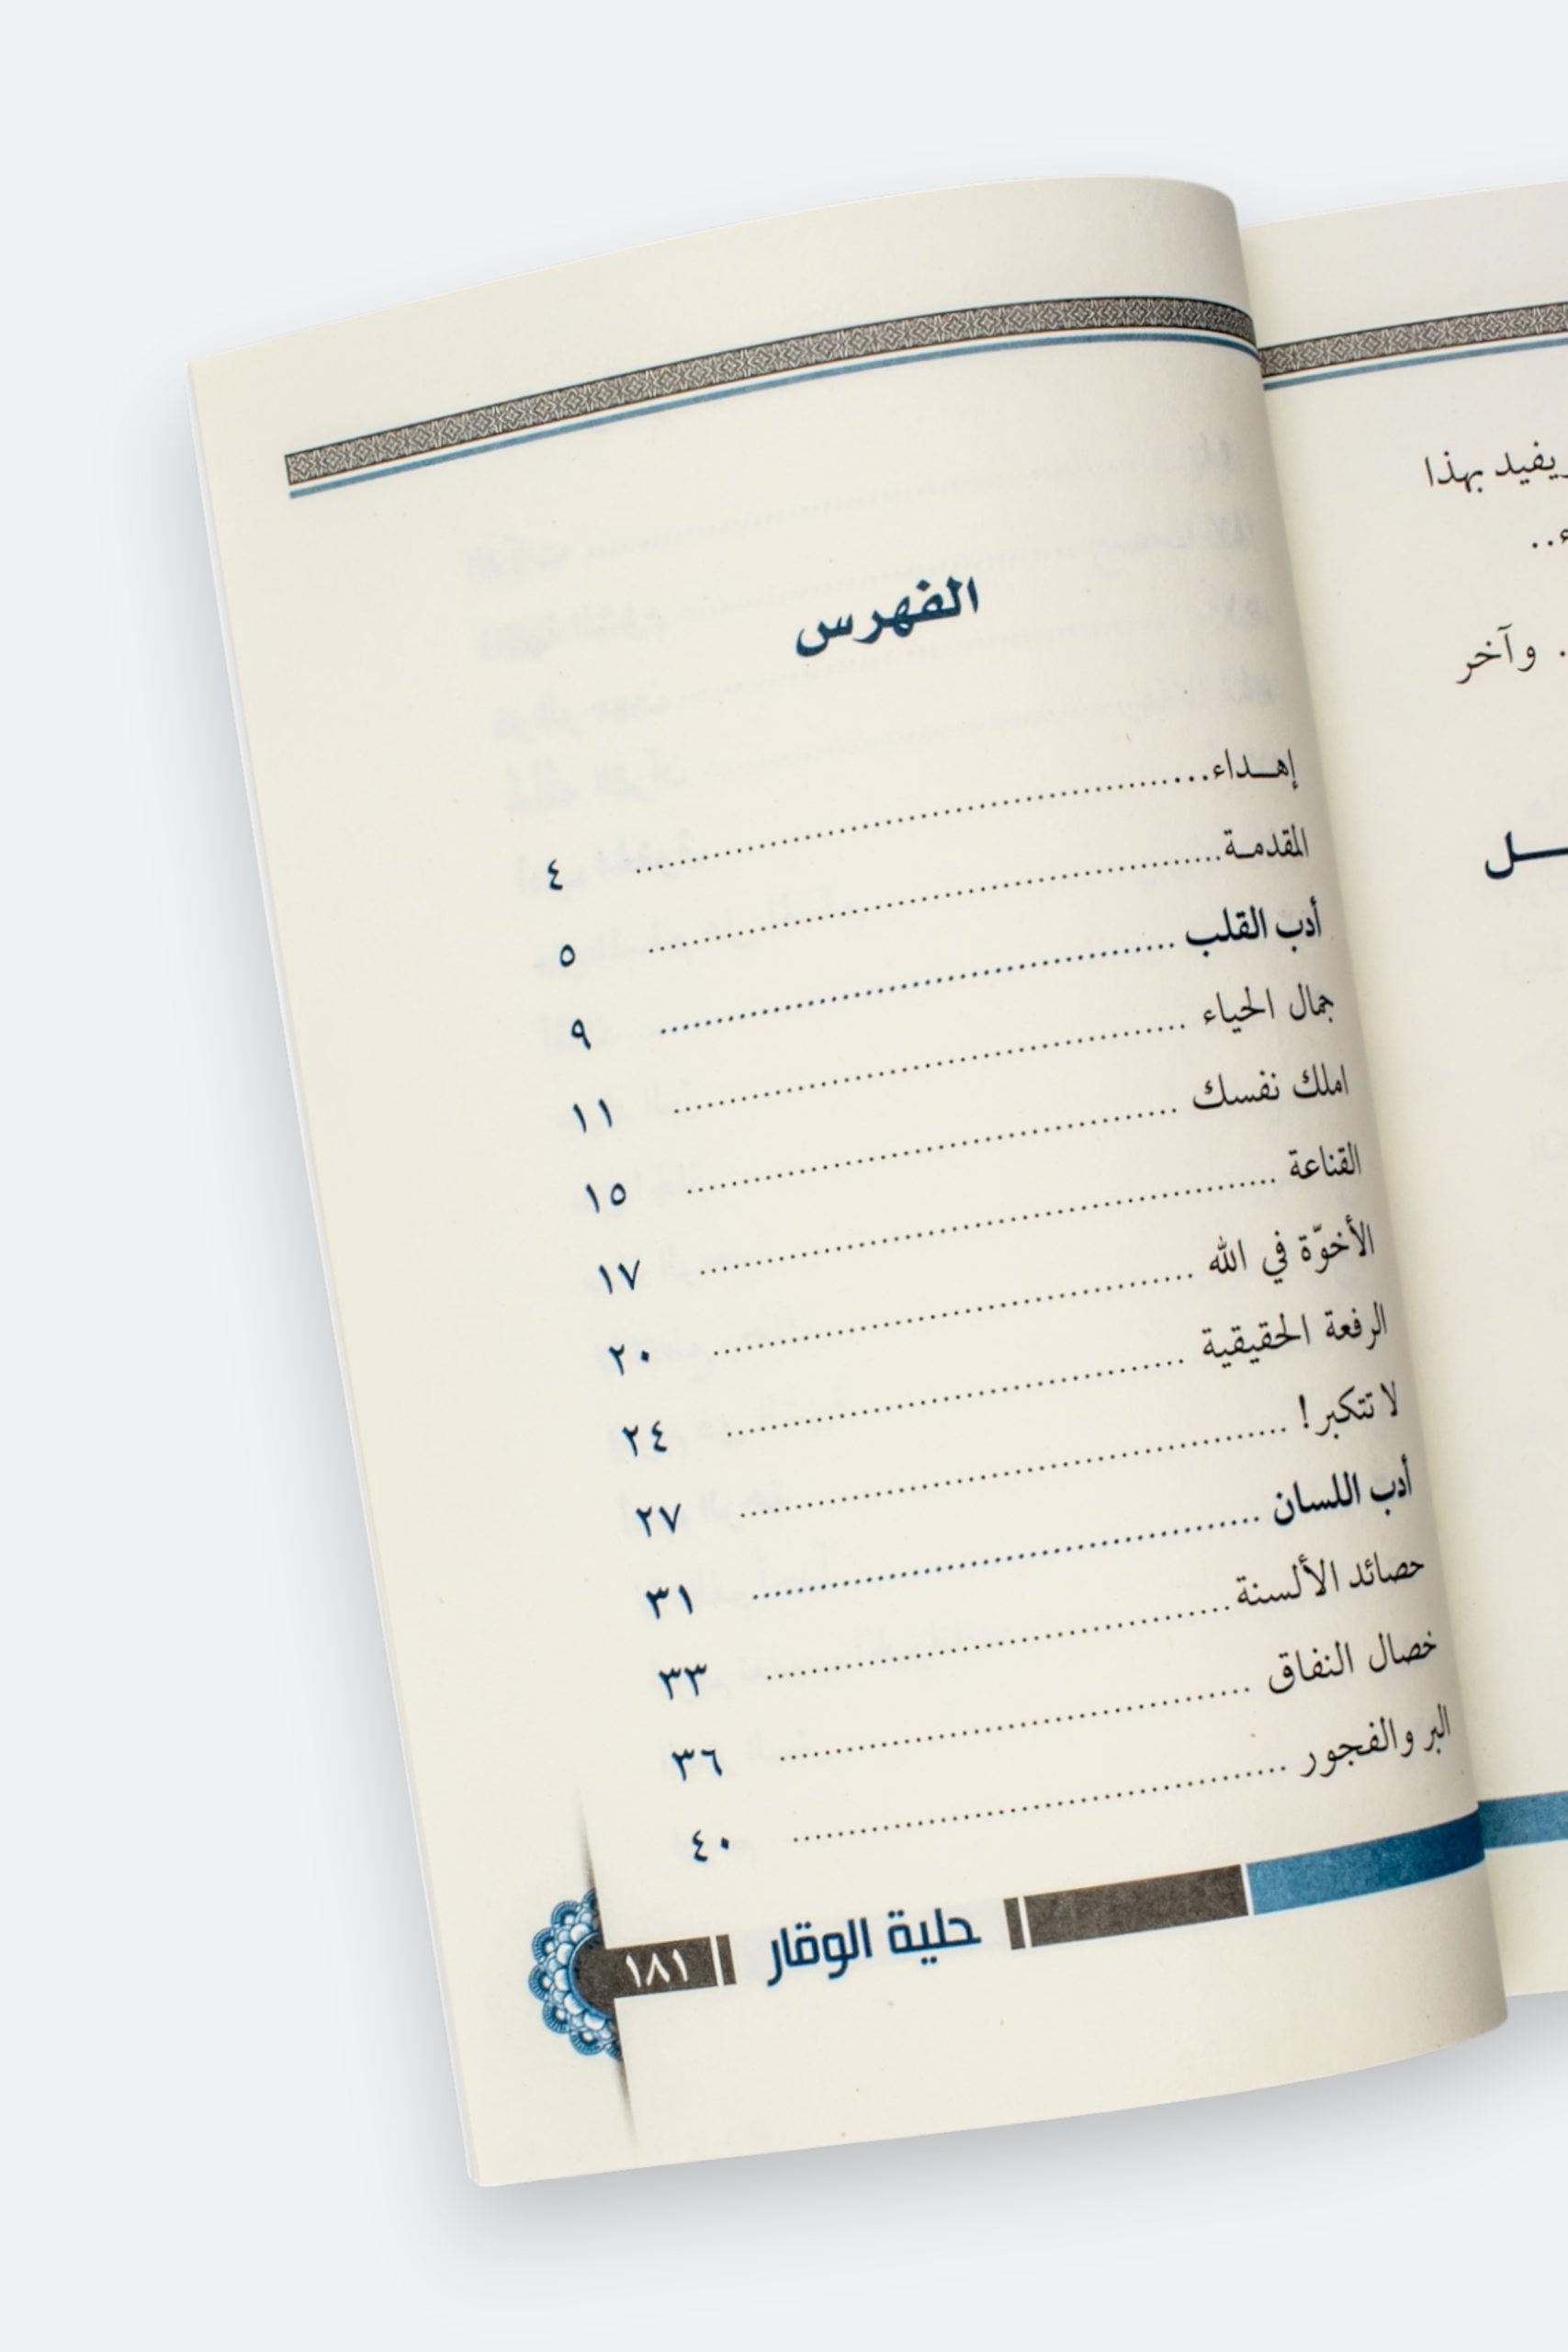 يفيد بهذا
وآخر
الفهرس
إهـــداء........ ٤
المقدمـة........ ٥
أدب القلب ........ ٩
جمال الحياء ........ ١١
املك نفسك ........ ١٥
القناعة ........ ١٧
الأخوّة في الله ........ ٢٠
الرفعة الحقيقية ........ ٢٤
لا تتكبر! ........ ٢٧
أدب اللسان ........ ٣١
حصائد الألسنة........ ٣٣
خصال النفاق ........ ٣٦
البر والفجور ........ ٤٠
حلية الوقار ١٨١